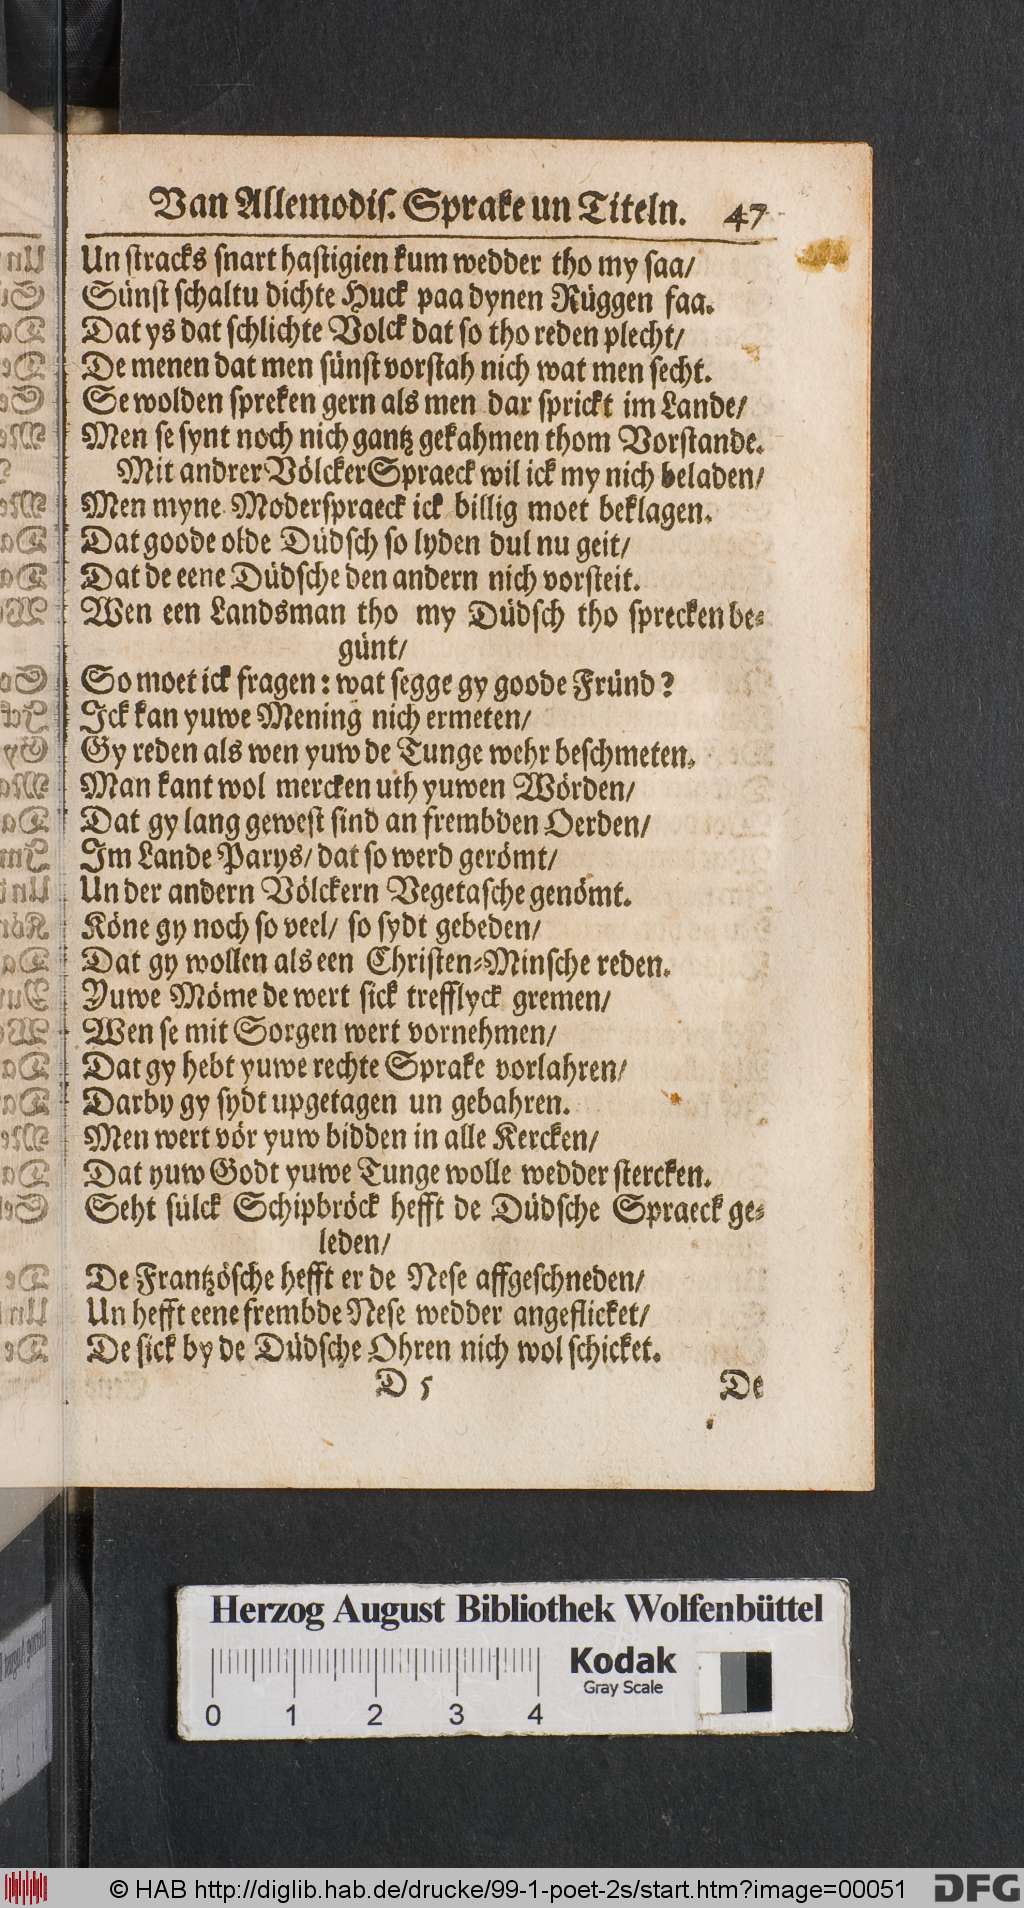 Van Allemodiſ. Sprake un Titeln. 47
Un ſtracks ſnart haſtigien kum wedder tho my ſaa/
Sünſt ſchaltu dichte Huck paa dynen Rüggen faa.
Dat ys dat ſchlichte Volck dat ſo tho reden plecht/
De menen dat men ſünſt vorſtah nich wat men ſecht.
Se wolden ſpreken gern als men dar ſprickt im Lande/
Men ſe ſynt noch nich gantz gekahmen thom Vorſtande.
Mit andrer Völcker Spraeck wil ick my nich beladen/
Men myne Moderſpraeck ick billig moet beklagen.
Dat goode olde Düdſch ſo lyden dul nu geit/
Dat de eene Düdſche den andern nich vorſteit.
Wen een Landsman tho my Düdſch tho ſprecken be-
günt/
So moet ick fragen: wat ſegge gy goode Fründ?
Ick kan yuwe Mening nich ermeten/
Gy reden als wen yuw de Tunge wehr beſchmeten.
Man kant wol mercken uth yuwen Wörden/
Dat gy lang geweſt ſind an frembden Oerden/
Im Lande Parys/ dat ſo werd gerömt/
Un der andern Völckern Vegetaſche genömt.
Köne gy noch ſo veel/ ſo ſydt gebeden/
Dat gy wollen als een Chriſten-Minſche reden.
Yuwe Möme de wert ſick trefflyck gremen/
Wen ſe mit Sorgen wert vornehmen/
Dat gy hebt yuwe rechte Sprake vorlahren/
Darby gy ſydt upgetagen un gebahren.
Men wert vör yuw bidden in alle Kercken/
Dat yuw Godt yuwe Tunge wolle wedder ſtercken.
Seht ſülck Schipbröck hefft de Düdſche Spraeck ge-
leden/
De Frantzöſche hefft er de Neſe affgeſchneden/
Un hefft eene frembde Neſe wedder angeflicket/
De ſick by de Düdſche Ohren nich wol ſchicket.
D 5 De
Herzog August Bibliothek Wolfenbüttel
Kodak
Gray Scale
0 1 2 3 4
© HAB http://diglib.hab.de/drucke/99-1-poet-2s/start.htm?image=00051
DFG